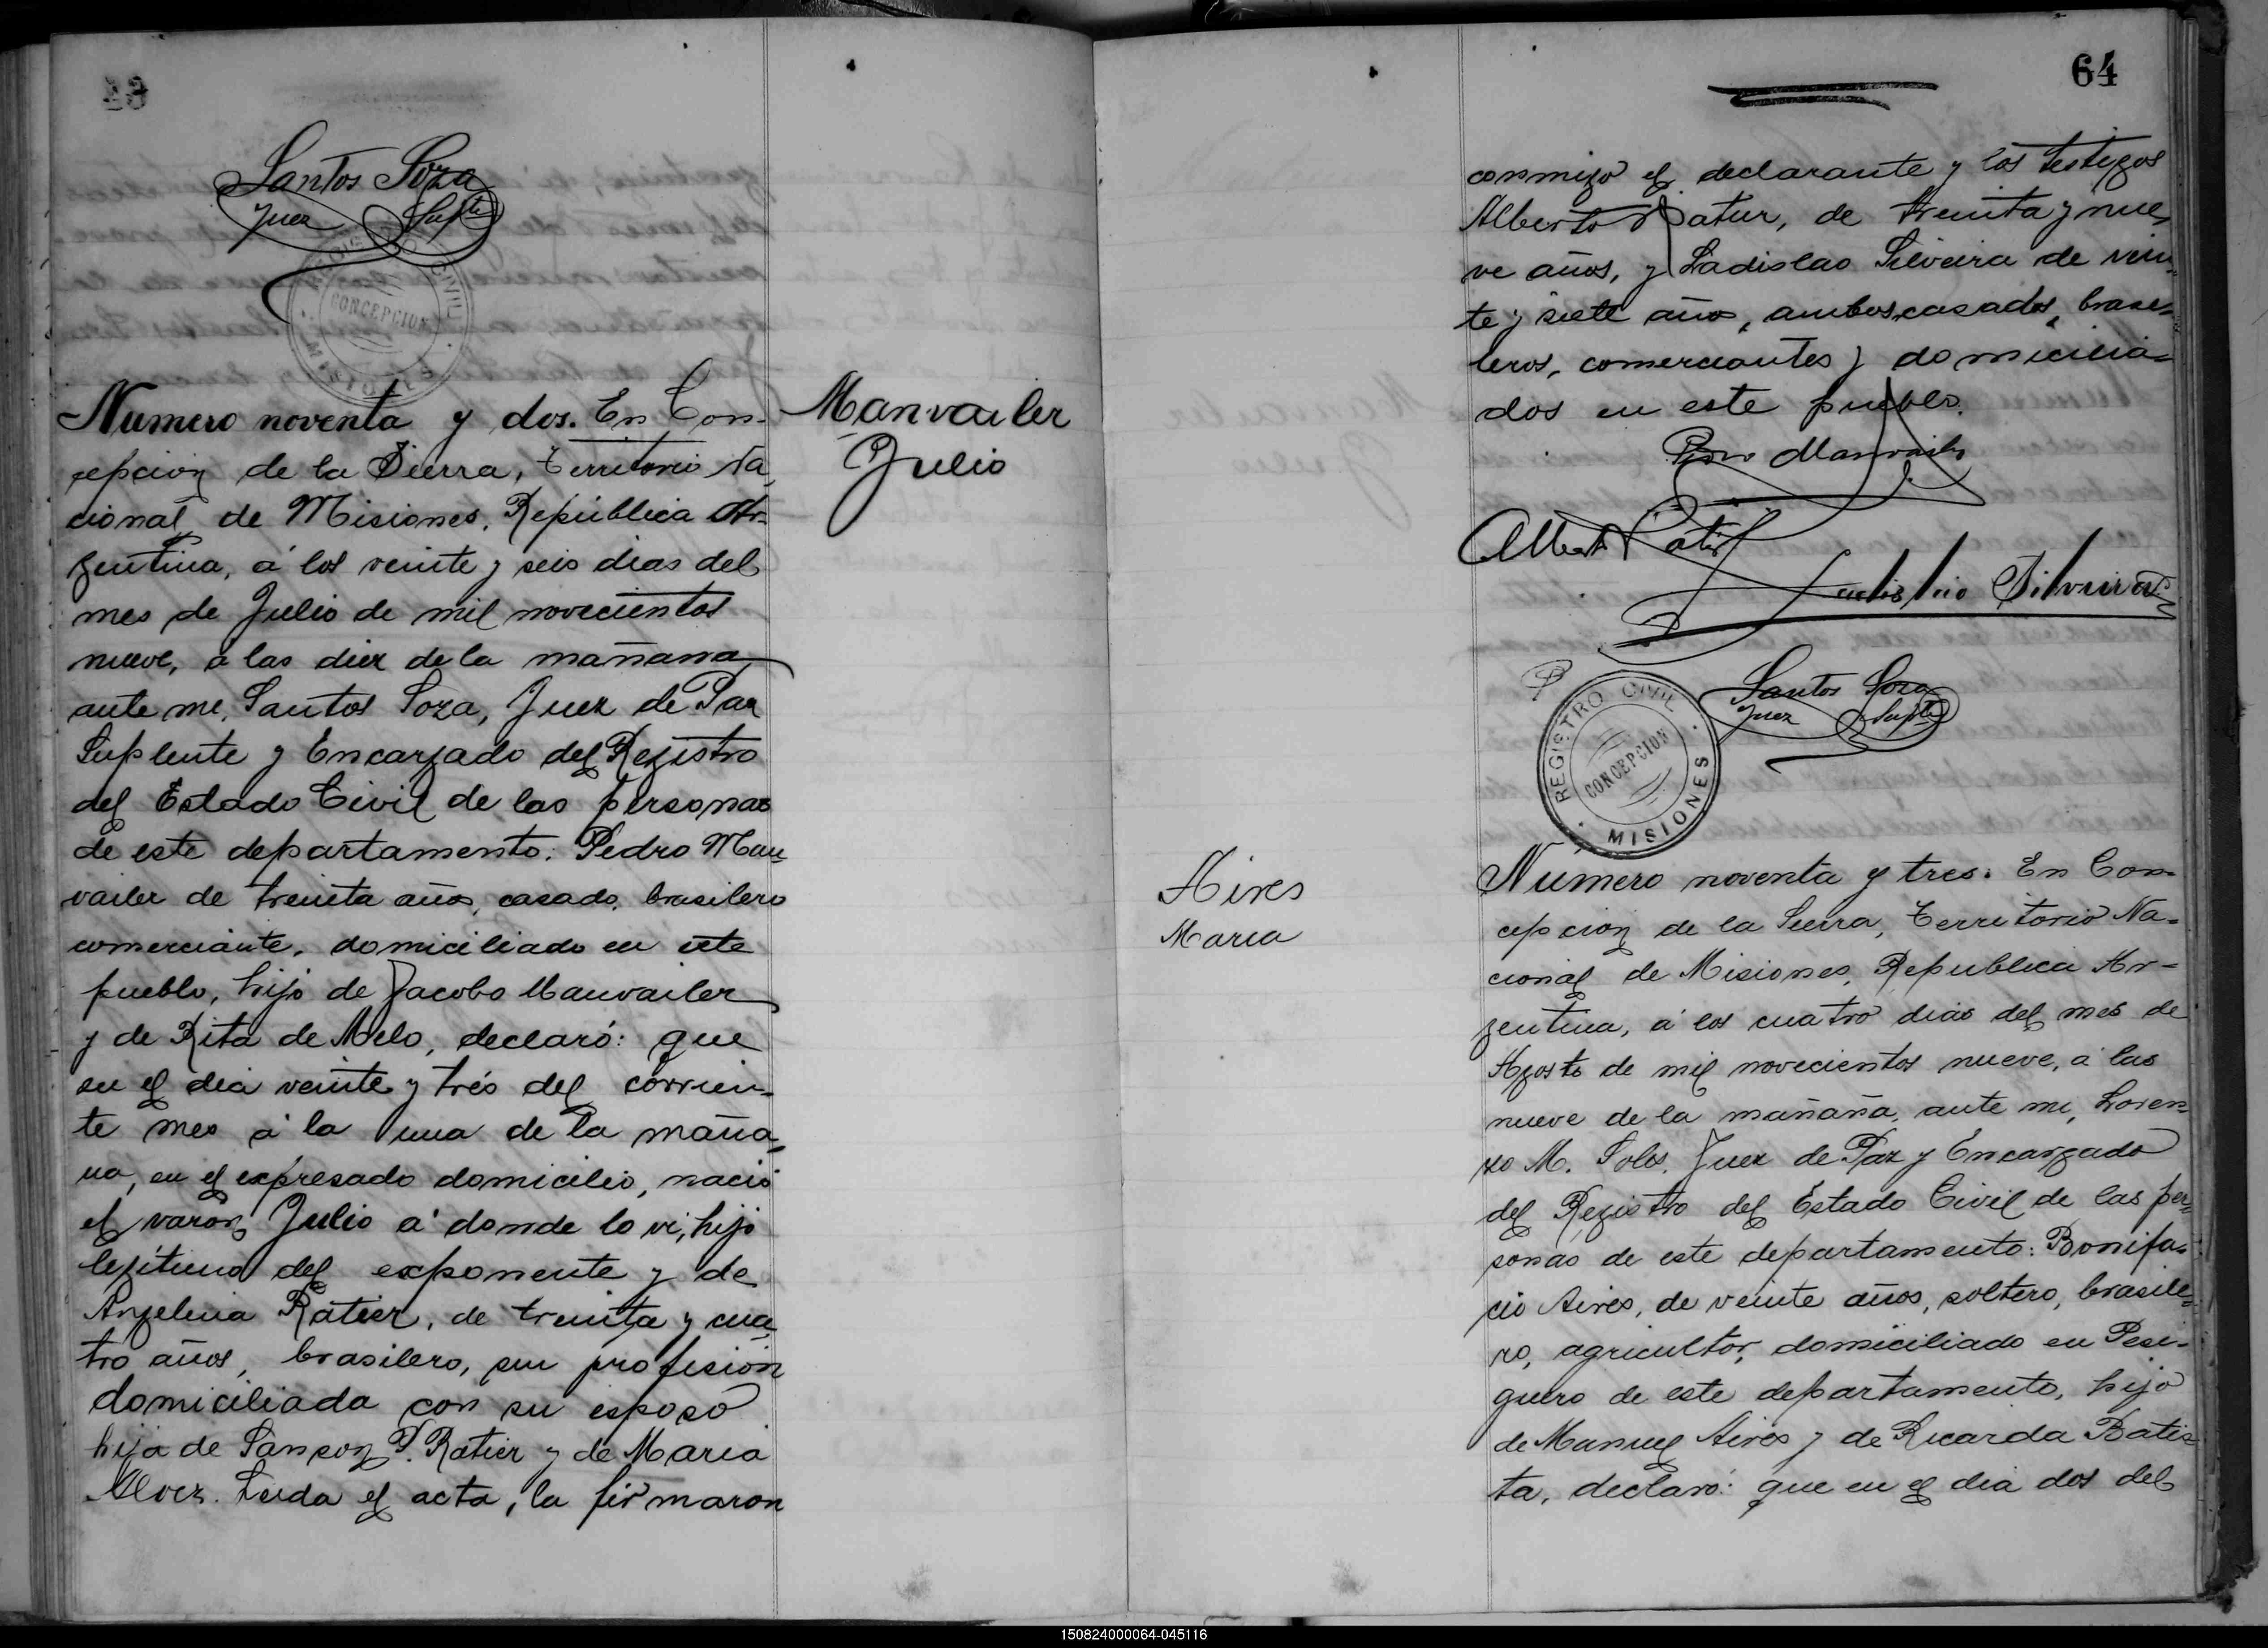 Santos Soza
Juez Suplte
REGISTRO CIVIL
CONCEPCION
MISIONES
Numero noventa y dos. En Con-
cepcion de la Sierra, Territorio Na
cional de Misiones, República Ar-
gentina, á los veinte y seis dias del
mes de Julio de mil novecientos
nueve, á las diez de la mañana
ante me, Santos Soza, Juez de Paz
Suplente y Encargado del Registro
del Estado Civil de las personas
de este departamento: Pedro Man
vailer de treinta años, casado, brasilero
comerciante, domiciliado en este
pueblo, hijo de Jacobo Manvailer
y de Rita de Melo, declaró: que
en el dia veinte y trés del corrien-
te mes á la una de la maña-
na, en el expresado domicilio, nació
el varon Julio á donde lo vi, hijo
legítimo del exponente y de
Angelina Ratier, de treinta y cua
tro años, brasilero, sin profesión
domiciliada con su esposo
hija de Sanson P. Ratier y de Maria
Alvez. Leida el acta, la firmaron
Manvailer
Julio
64
conmigo el declarante y los testigos
Alberto Ratier, de treinta y nue
ve años, y Ladislao Silveira de vein-
te y siete años, ambos casados, brasi-
leros, comerciantes y domicilia-
dos en este pueblo.
Pedro Manvailer
Alberto Ratier
Ladislao Silveira
Santos Soza
Juez Suplte
REGISTRO CIVIL
CONCEPCION
MISIONES
Aires
Maria
Numero noventa y tres. En Con-
cepcion de la Sierra, Territorio Na-
cional de Misiones, Republica Ar-
gentina, á los cuatro dias del mes de
Agosto de mil novecientos nueve, á las
nueve de la mañana, ante me, Loren
zo M. Solos, Juez de Paz y Encargado
del Registro del Estado Civil de las per-
sonas de este departamento: Bonifa-
cio Aires, de veinte años, soltero, brasile-
ro, agricultor, domiciliado en Pesi-
guero de este departamento, hijo
de Manuel Aires y de Ricarda Batis
ta, declaró: que en el dia dos del
150824000064-045116